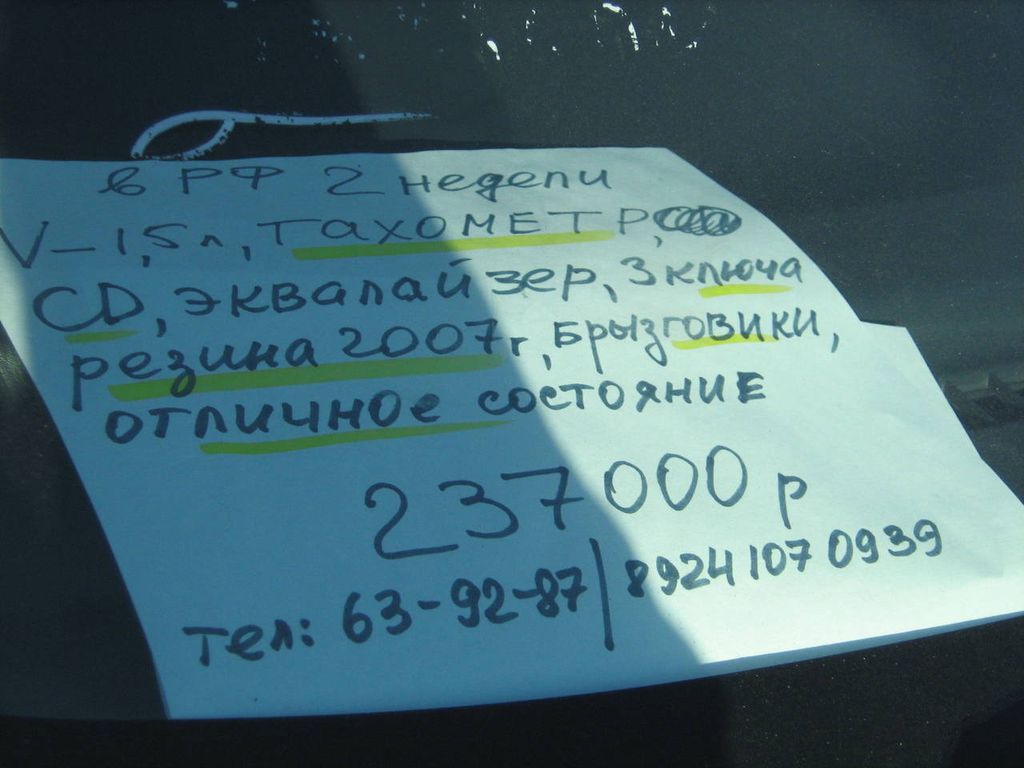 в РФ 2 недели
V-1,5л, ТАХОМЕТР,
CD, эквалайзер, 3 ключа
резина 2007г, брызговики,
отличное состояние
237000 р
тел: 63-92-87 | 8924 107 0939